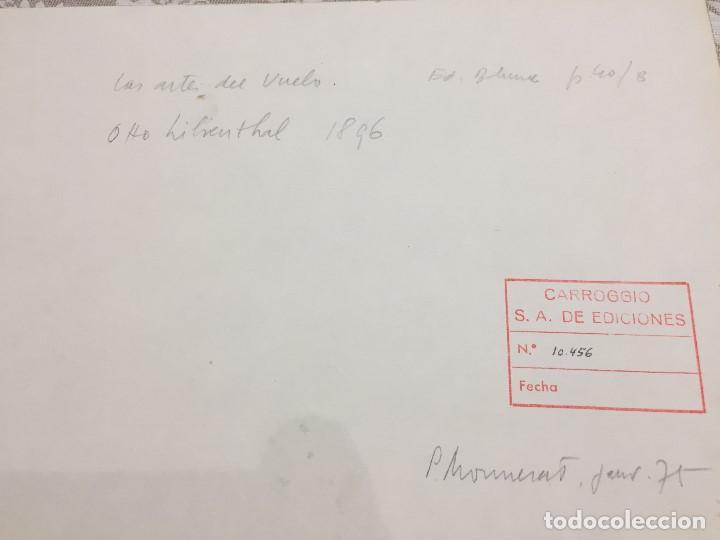 Las artes del Vuelo. Ed. Blume p 40/B
Otto Lilienthal 1896
CARROGGIO
S. A. DE EDICIONES
N.º 10.456
Fecha
P. Monnerat, janv. 75
todocoleccion
todocoleccion.net